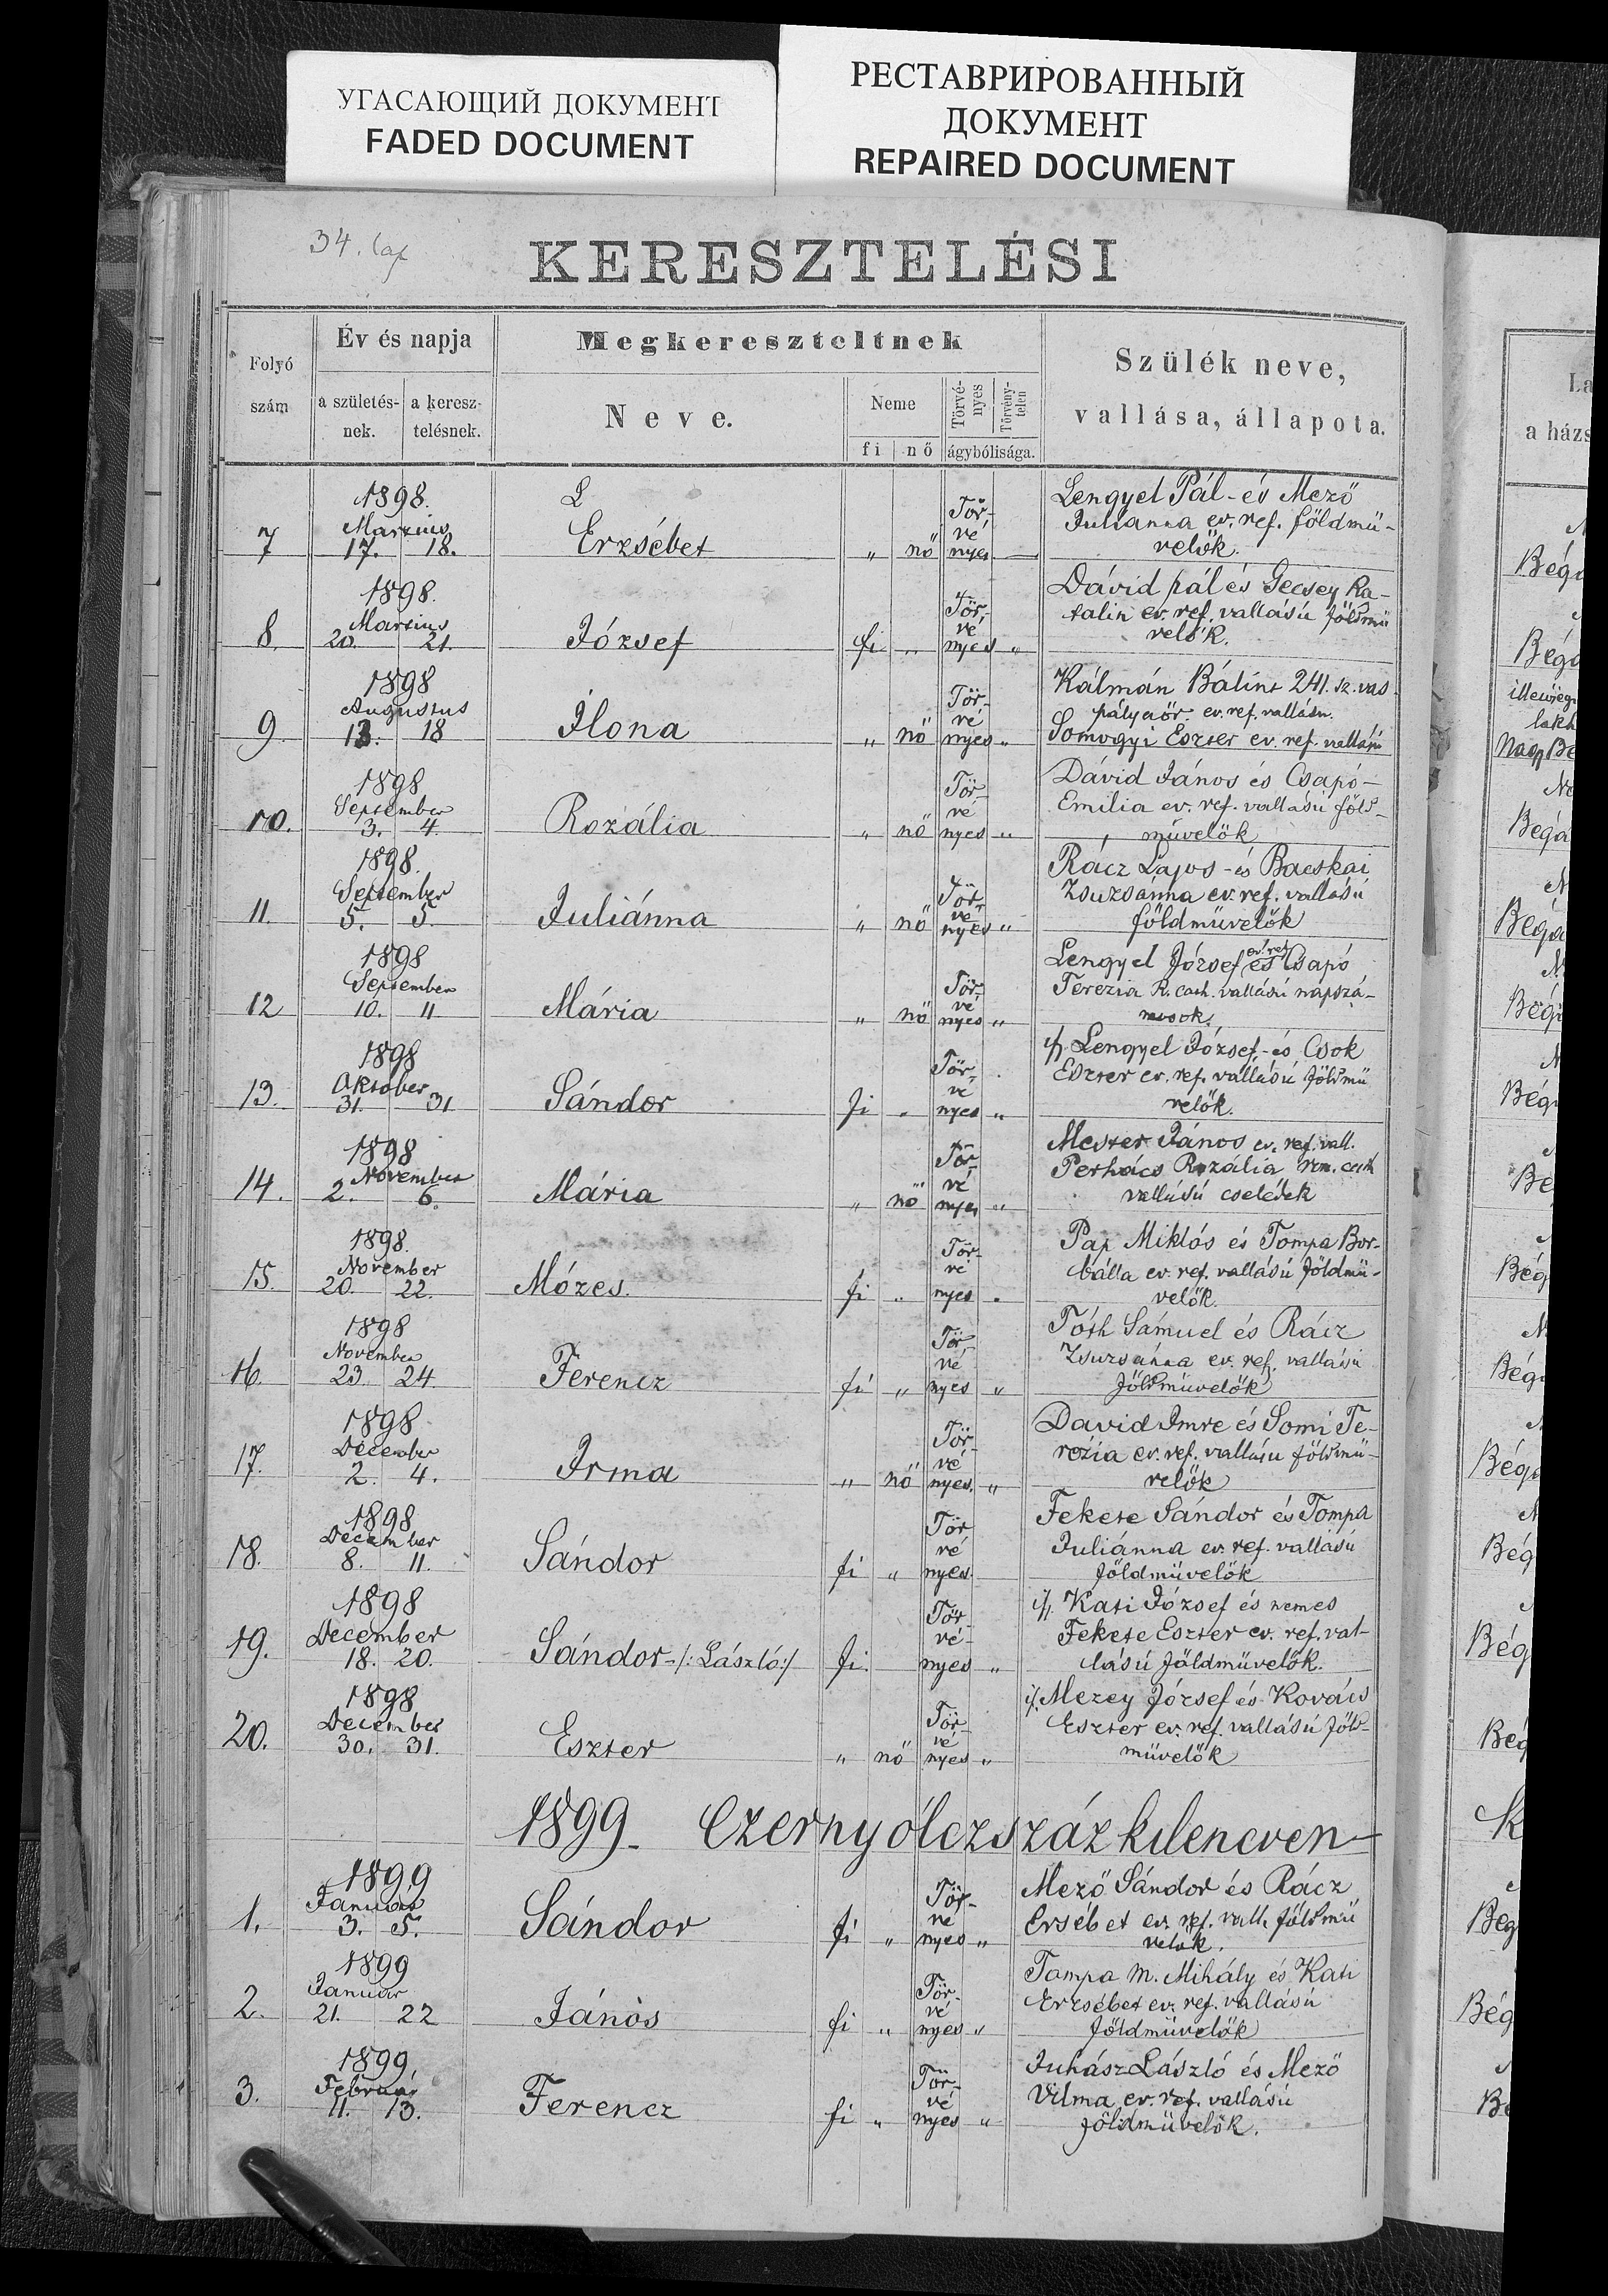 УГАСАЮЩИЙ ДОКУМЕНТ
FADED DOCUMENT
РЕСТАВРИРОВАННЫЙ
ДОКУМЕНТ
REPAIRED DOCUMENT
34. lap
KERESZTELÉSI
Folyó
szám
Év és napja
a születés-
nek.
a keresz-
telésnek.
Megkereszteltnek
Neve.
Neme
fi nő
Törvé-
nyes
Törvény-
telen
ágybólisága.
Szülék neve,
vallása, állapota.
La
a házs
1898.
Marzius
7 17. 18.
L
Erzsébet
„ nő
Tör-
vé
nyes —
Lengyel Pál - és Mező
Julianna ev. ref. földmü-
velők.
Bég
1898.
Marsius
8. 20. 21.
József
fi „
Tör-
vé
nyes „
Dávid pál és Gecsey Ka-
talin ev. ref. vallású földmü
velők.
Bég
1898
Augustus
9. 13. 18
Ilona
„ nő
Tör-
vé
nyes „
Kálmán Bálint 241. sz. vas
pályaőr. ev. ref. vallásu.
Somogyi Eszter ev. ref. vallású
Nagy Be
1898
September
10. 3. 4.
Rozália
„ nő
Tör-
vé
nyes „
Dávid János és Csapó-
Emilia ev. ref. vallású föld-
müvelők
Bégá
1898.
September
11. 5. 5.
Juliánna
„ nő
Tör-
vé
nyes „
Rácz Lajos - és Bacskai
Zsuzsánna ev. ref. vallású
földmüvelők
Béga
1898
September
12 10. 11
Mária
„ nő
Tör-
vé
nyes „
ev. ref
Lengyel József és Csapó
Terézia R. cath. vallású napszá-
mosok.
Bég
1898
Október
13. 31. 31
Sándor
fi „
Tör-
vé
nyes „
ifj. Lengyel József - és Csok
Eszter ev. ref. vallású földmü
velők.
Bég
1898
November
14. 2. 6.
Mária
„ nő
Tör-
vé
nyes „
Mester János ev. ref. vall.
Perhács Rozália rom. cath
vallású cselédek
Be
1898.
November
15. 20. 22.
Mózes.
fi „
Tör-
vé
nyes „
Pap Miklós és Tompa Bor-
bálla ev. ref. vallású földmü-
velők.
Bég
1898
November
16. 23. 24.
Ferencz
fi „
Tör-
vé
nyes „
Tóth Sámuel és Rácz
Zsuzsánna ev. ref. vallású
földmüvelők
Bég
1898
December
17. 2. 4.
Irma
„ nő
Tör-
vé
nyes. „
David Imre és Somi Te-
rézia ev. ref. vallásu földmü-
velők
Bég
1898
December
18. 8. 11.
Sándor
fi „
Tör
vé
nyes.
Fekete Sándor és Tompa
Juliánna ev. ref. vallású
földmüvelők
Bég
1898
December
19. 18. 20.
Sándor -/: László:/
fi
Tör-
vé-
nyes „
ifj. Kati József és nemes
Fekete Eszter ev. ref. val-
lású földmüvelők.
Bég
1898
December
20. 30. 31.
Eszter
„ nő
Tör-
vé
nyes „
ifj. Mezey József és Kovács
Eszter ev. ref. vallású föld-
müvelők
Bég
1899. Ezernyólczszáz kilencven-
K
1899
Január
1. 3. 5.
Sándor
fi „
Tör-
vé
nyes „
Mező Sándor és Rácz
Ersébet ev. ref. vall. földmü
velők.
Beg
1899
Január
2. 21. 22
János
fi „
Tör-
vé
nyes „
Tompa M. Mihály és Kati
Erzsébet ev. ref. vallású
földmüvelők
Bég
1899.
Február
3. 11. 13.
Ferencz
fi „
Tör-
vé
nyes „
Juhász László és Mező
Vilma ev. ref. vallású
földmüvelők.
Be